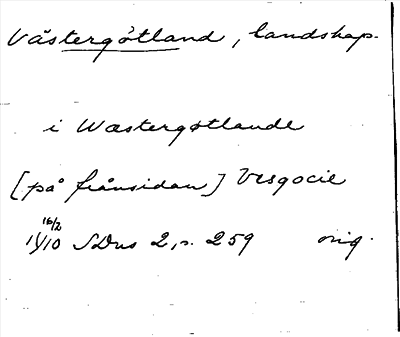 Västergötland, landskap.
i Wæstergøtlande
[på frånsidan] Vesgocie
16/2
1410 SDns 2, s. 259 orig.